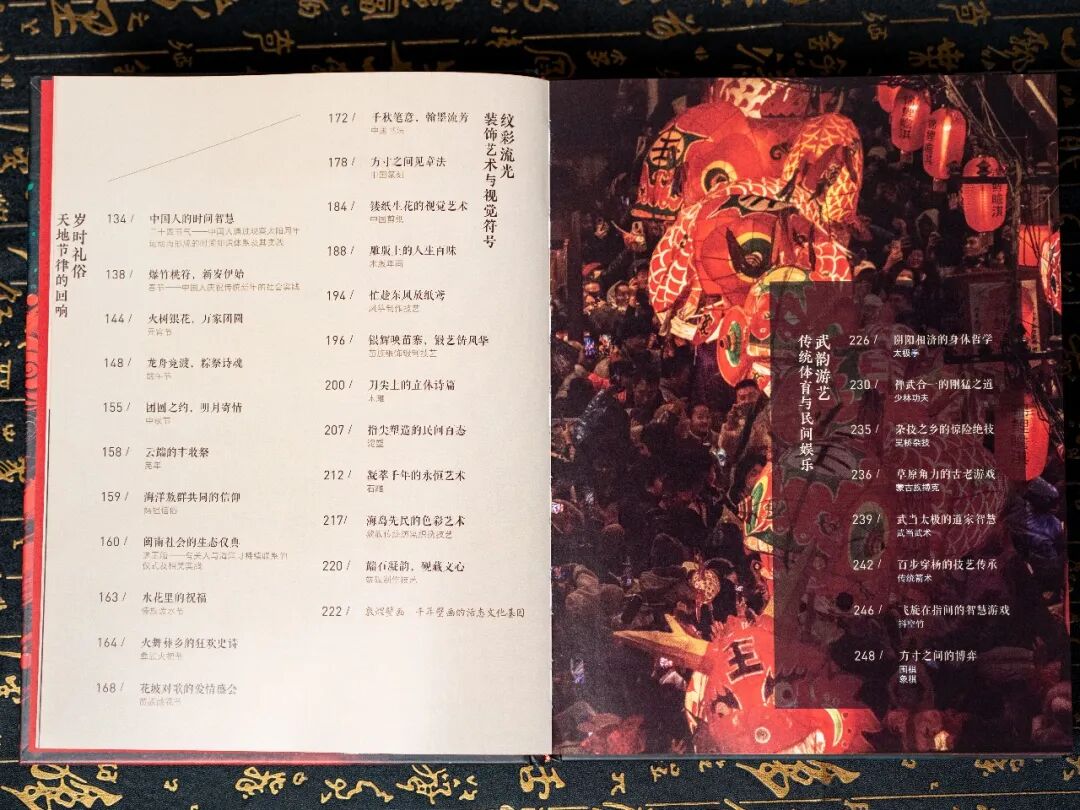 岁时礼俗
天地节律的回响
134 / 中国人的时间智慧
二十四节气——中国人通过观察太阳周年
运动而形成的时间知识体系及其实践
138 / 爆竹桃符，新岁伊始
春节——中国人庆祝传统新年的社会实践
144 / 火树银花，万家团圆
元宵节
148 / 龙舟竞渡，粽祭诗魂
端午节
155 / 团圆之约，明月寄情
中秋节
158 / 云端的丰收祭
159 / 海洋族群共同的信仰
妈祖信俗
160 / 闽南社会的生态仪典
送王船——有关人与海洋可持续联系的
仪式及相关实践
163 / 水花里的祝福
傣族泼水节
164 / 火舞彝乡的狂欢史诗
彝族火把节
168 / 花坡对歌的爱情盛会
纹彩流光
装饰艺术与视觉符号
172 / 千秋笔意，翰墨流芳
中国书法
178 / 方寸之间见章法
中国篆刻
184 / 镂纸生花的视觉艺术
中国剪纸
188 / 雕版上的人生百味
木版年画
194 / 忙趁东风放纸鸢
风筝制作技艺
196 / 银辉映苗寨，锻艺饰风华
苗族银饰锻制技艺
200 / 刀尖上的立体诗篇
木雕
207 / 指尖塑造的民间百态
泥塑
212 / 凝萃千年的永恒艺术
石雕
217/ 海岛先民的色彩艺术
黎族传统纺染织绣技艺
220 / 端石凝韵，砚藏文心
端砚制作技艺
222 / 敦煌壁画 千年壁画的活态文化基因
武韵游艺
传统体育与民间娱乐
226 / 阴阳相济的身体哲学
太极拳
230 / 禅武合一的刚猛之道
少林功夫
235 / 杂技之乡的惊险绝技
吴桥杂技
236 / 草原角力的古老游戏
蒙古族搏克
239 / 武当太极的道家智慧
武当武术
242 / 百步穿杨的技艺传承
传统箭术
246 / 飞旋在指间的智慧游戏
抖空竹
248 / 方寸之间的博弈
围棋
象棋
王